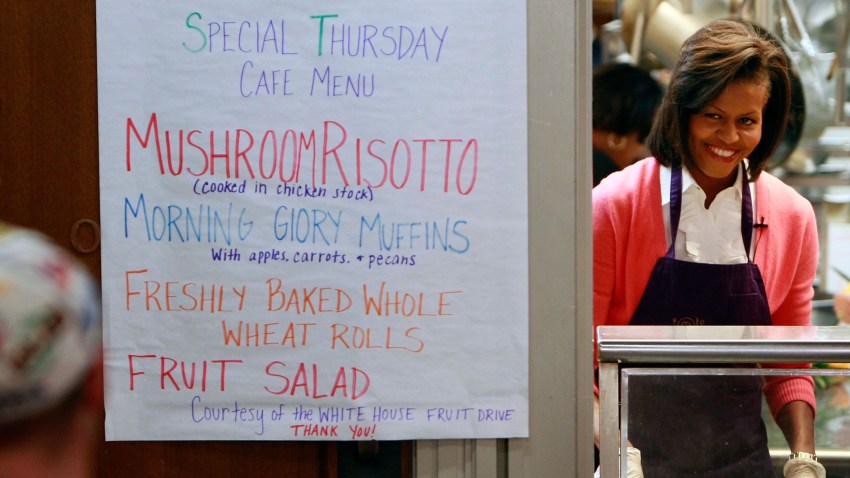 SPECIAL THURSDAY
CAFE MENU
MUSHROOM RISOTTO
(cooked in chicken stock)
MORNING GLORY MUFFINS
With apples, carrots, + pecans
FRESHLY BAKED WHOLE
WHEAT ROLLS
FRUIT SALAD
Courtesy of the WHITE HOUSE FRUIT DRIVE
THANK YOU!